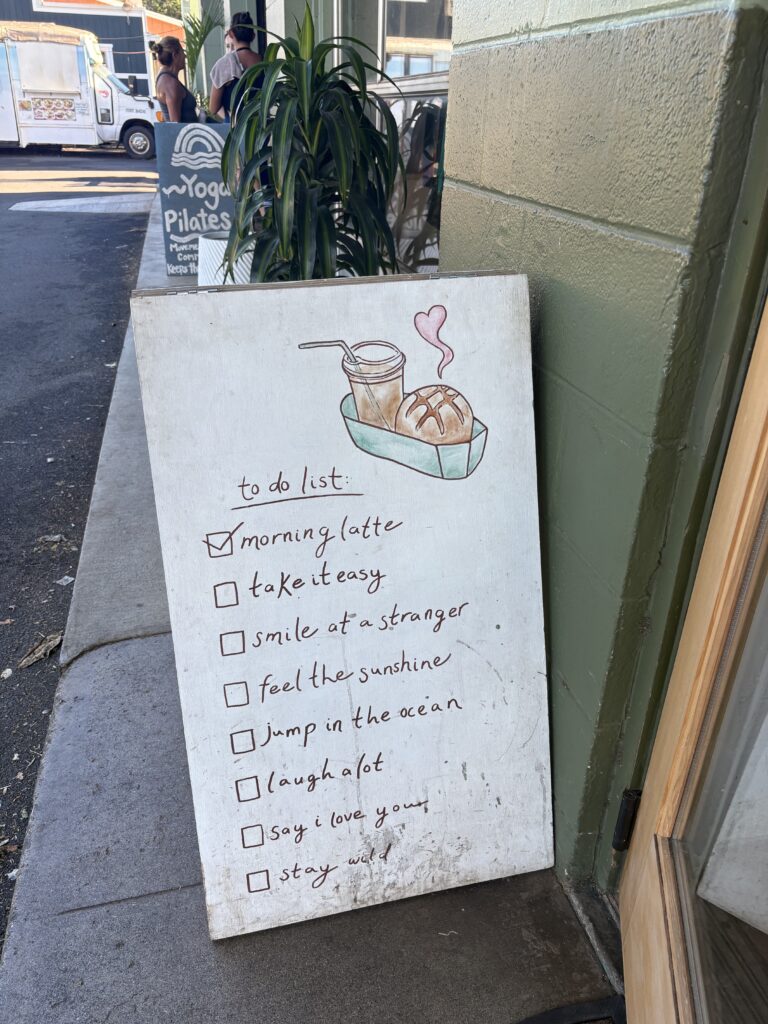 Yoga
Pilates
Keeps the
to do list:
morning latte
take it easy
smile at a stranger
feel the sunshine
jump in the ocean
laugh a lot
say i love you
stay wild